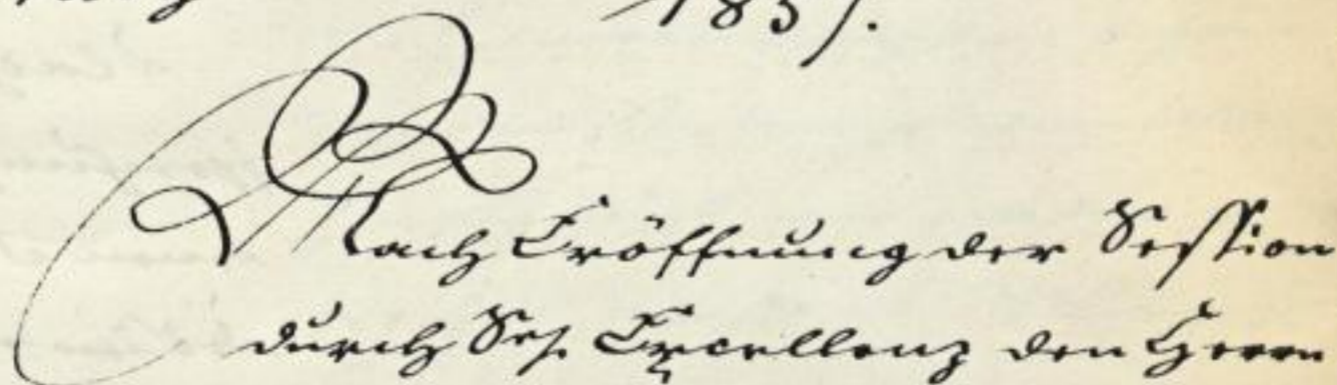 1857.
Nach Eröffnung der Session
durch Se. Excellenz den Herrn